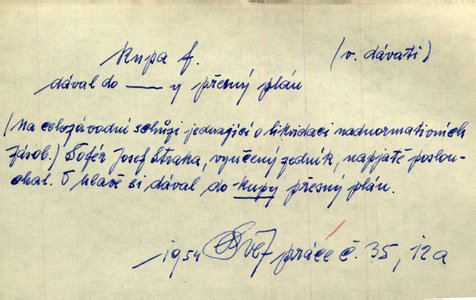 kupa f. (v. dávati)
dával do —— y přesný plán
(Na celozávodní schůzi jednající o likvidaci nadnormativních
zásob.) Šofér Josef Straka, vyučený zedník, napjatě poslou-
chal. V hlavě si dával do kupy přesný plán.
1954 Svět práce č. 35, 12a